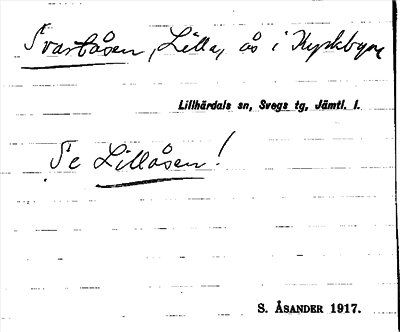 Svartåsen, Lilla, ås i Kyrkbyn
Lillhärdals sn, Svegs tg, Jämtl. l.
Se Lillåsen!
S. ÅSANDER 1917.